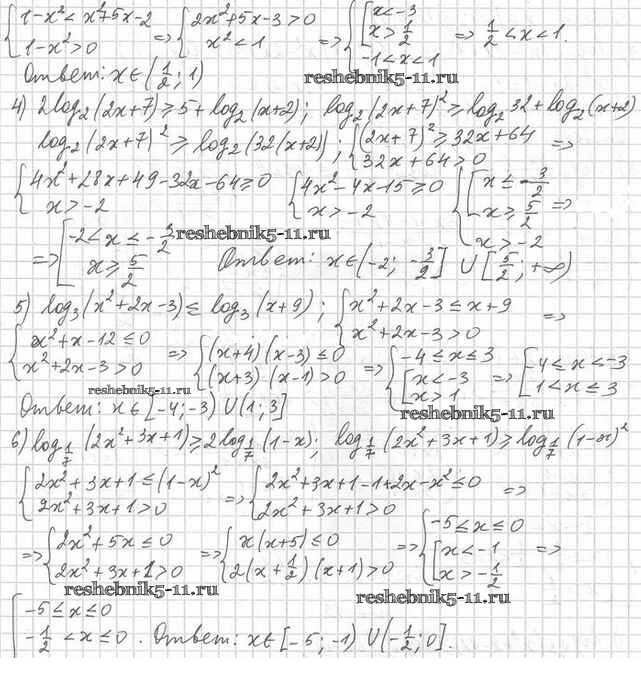 {1-x² < x²+5x-2 {2x²+5x-3>0 {[x<-3
{1-x²>0 => {x²<1 => {[x>1/2 => 1/2<x<1.
{-1<x<1
Ответ: x∈(1/2; 1)
reshebnik5-11.ru
4) 2log₂(2x+7)≥5+log₂(x+2); log₂(2x+7)²≥log₂32+log₂(x+2)
log₂(2x+7)²≥log₂(32(x+2)); {(2x+7)²≥32x+64 =>
{32x+64>0
{4x²+28x+49-32x-64≥0 {4x²-4x-15≥0 {[x≤-3/2
{x>-2 {x>-2 {[x≥5/2 =>
{x>-2
reshebnik5-11.ru
=> [-2<x≤-3/2
[x≥5/2 Ответ: x∈(-2; -3/2] ∪ [5/2; +∞)
5) log₃(x²+2x-3)≤log₃(x+9); {x²+2x-3≤x+9 =>
{x²+2x-3>0
{x²+x-12≤0 => {(x+4)(x-3)≤0 => {-4≤x≤3 => [-4≤x<-3
{x²+2x-3>0 {(x+3)(x-1)>0 {[x<-3 [1<x≤3
{[x>1
reshebnik5-11.ru
reshebnik5-11.ru
Ответ: x∈[-4;-3) ∪ (1;3]
6) log₁/₇(2x²+3x+1)≥2log₁/₇(1-x); log₁/₇(2x²+3x+1)≥log₁/₇(1-x)²
{2x²+3x+1≤(1-x)² => {2x²+3x+1-1+2x-x²≤0 =>
{2x²+3x+1>0 {2x²+3x+1>0
=> {2x²+5x≤0 => {x(x+5)≤0 => {-5≤x≤0 =>
{2x²+3x+1>0 {2(x+1/2)(x+1)>0 {[x<-1
{[x>-1/2
reshebnik5-11.ru
reshebnik5-11.ru
{-5≤x≤0
{-1/2<x≤0. Ответ: x∈[-5; -1) ∪ (-1/2; 0].